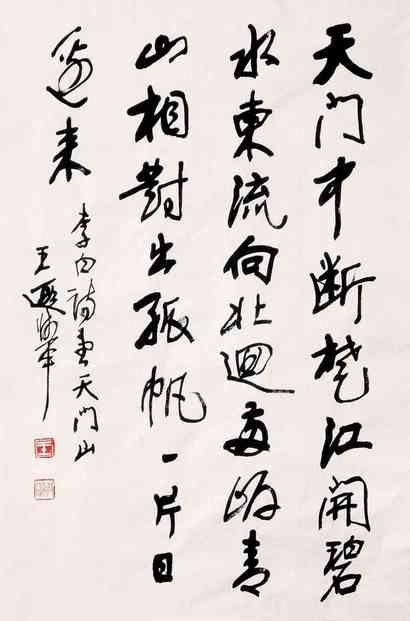 天门中断楚江開碧
水東流向北迴两岸青
山相對出孤帆一片日
邊来
李白詩望天门山
王遐舉